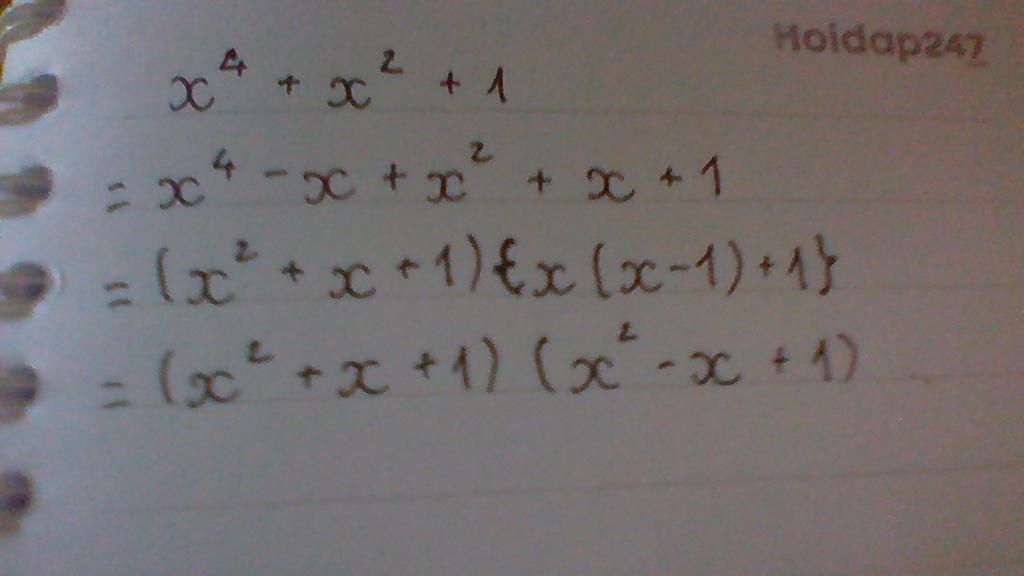 Hoidap247
x⁴ + x² + 1
= x⁴ - x + x² + x + 1
= (x² + x + 1){x(x-1)+1}
= (x² + x + 1) (x² - x + 1)